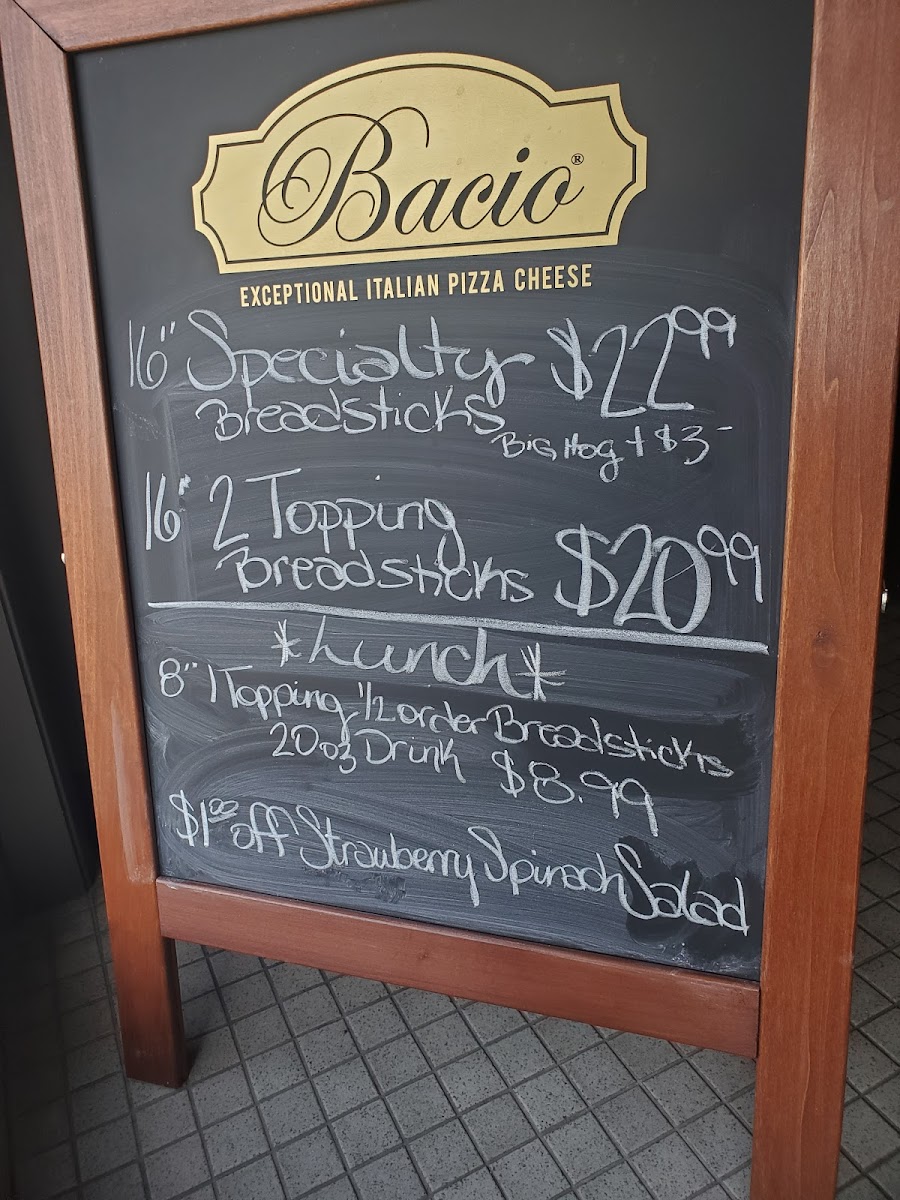 Bacio®
EXCEPTIONAL ITALIAN PIZZA CHEESE
16" Specialty $22.99
Breadsticks
Big Hog + $3-
16" 2 Topping
Breadsticks $20.99
*Lunch*
8" 1 Topping 1/2 order Breadsticks
20oz Drink $8.99
$1.00 off Strawberry Spinach Salad